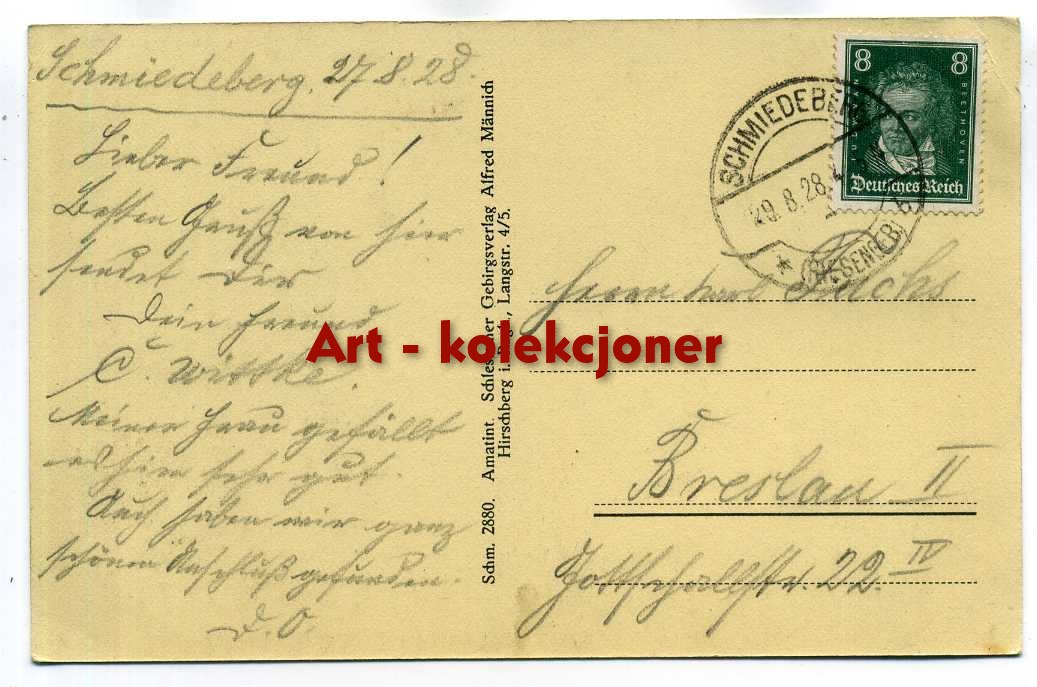 Schmiedeberg, 27.8.28.
Lieber Freund!
Besten Gruß von hier
sendet Dir
Dein Freund
C. Wittke.
Meiner Frau gefällt
es hier sehr gut.
Auch haben wir ganz
schönen Anschluß gefunden.
D. O.
Schm. 2880. Amatint. Schles ner Gebirgsverlag Alfred Männich
Hirschberg i. Langstr. 4/5.
8 8
BEETHOVEN
Deutsches Reich
SCHMIEDEBERG
29.8.28.
(RIESENGEB) b
Herrn Karl Fuchs
Breslau II
Gottschallstr. 22 IV
Art - kolekcjoner